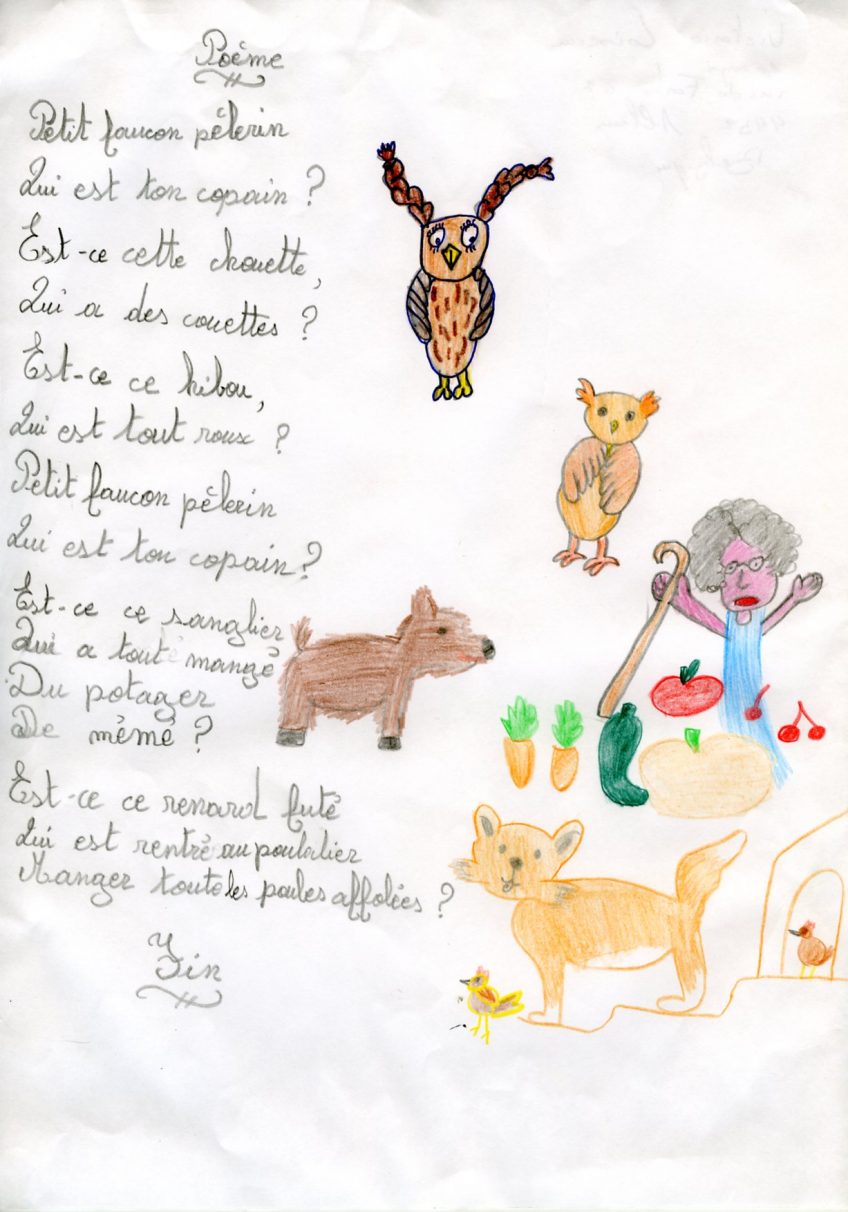 Poème
Petit faucon pélerin
Qui est ton copain ?
Est-ce cette chouette,
Qui a des couettes ?
Est-ce ce hibou,
Qui est tout roux ?
Petit faucon pélerin
Qui est ton copain ?
Est-ce ce sanglier
Qui a tout mangé
Du potager
De mémé ?
Est-ce ce renard futé
Qui est rentré au poulalier
Manger toute les poules affolées ?
Fin